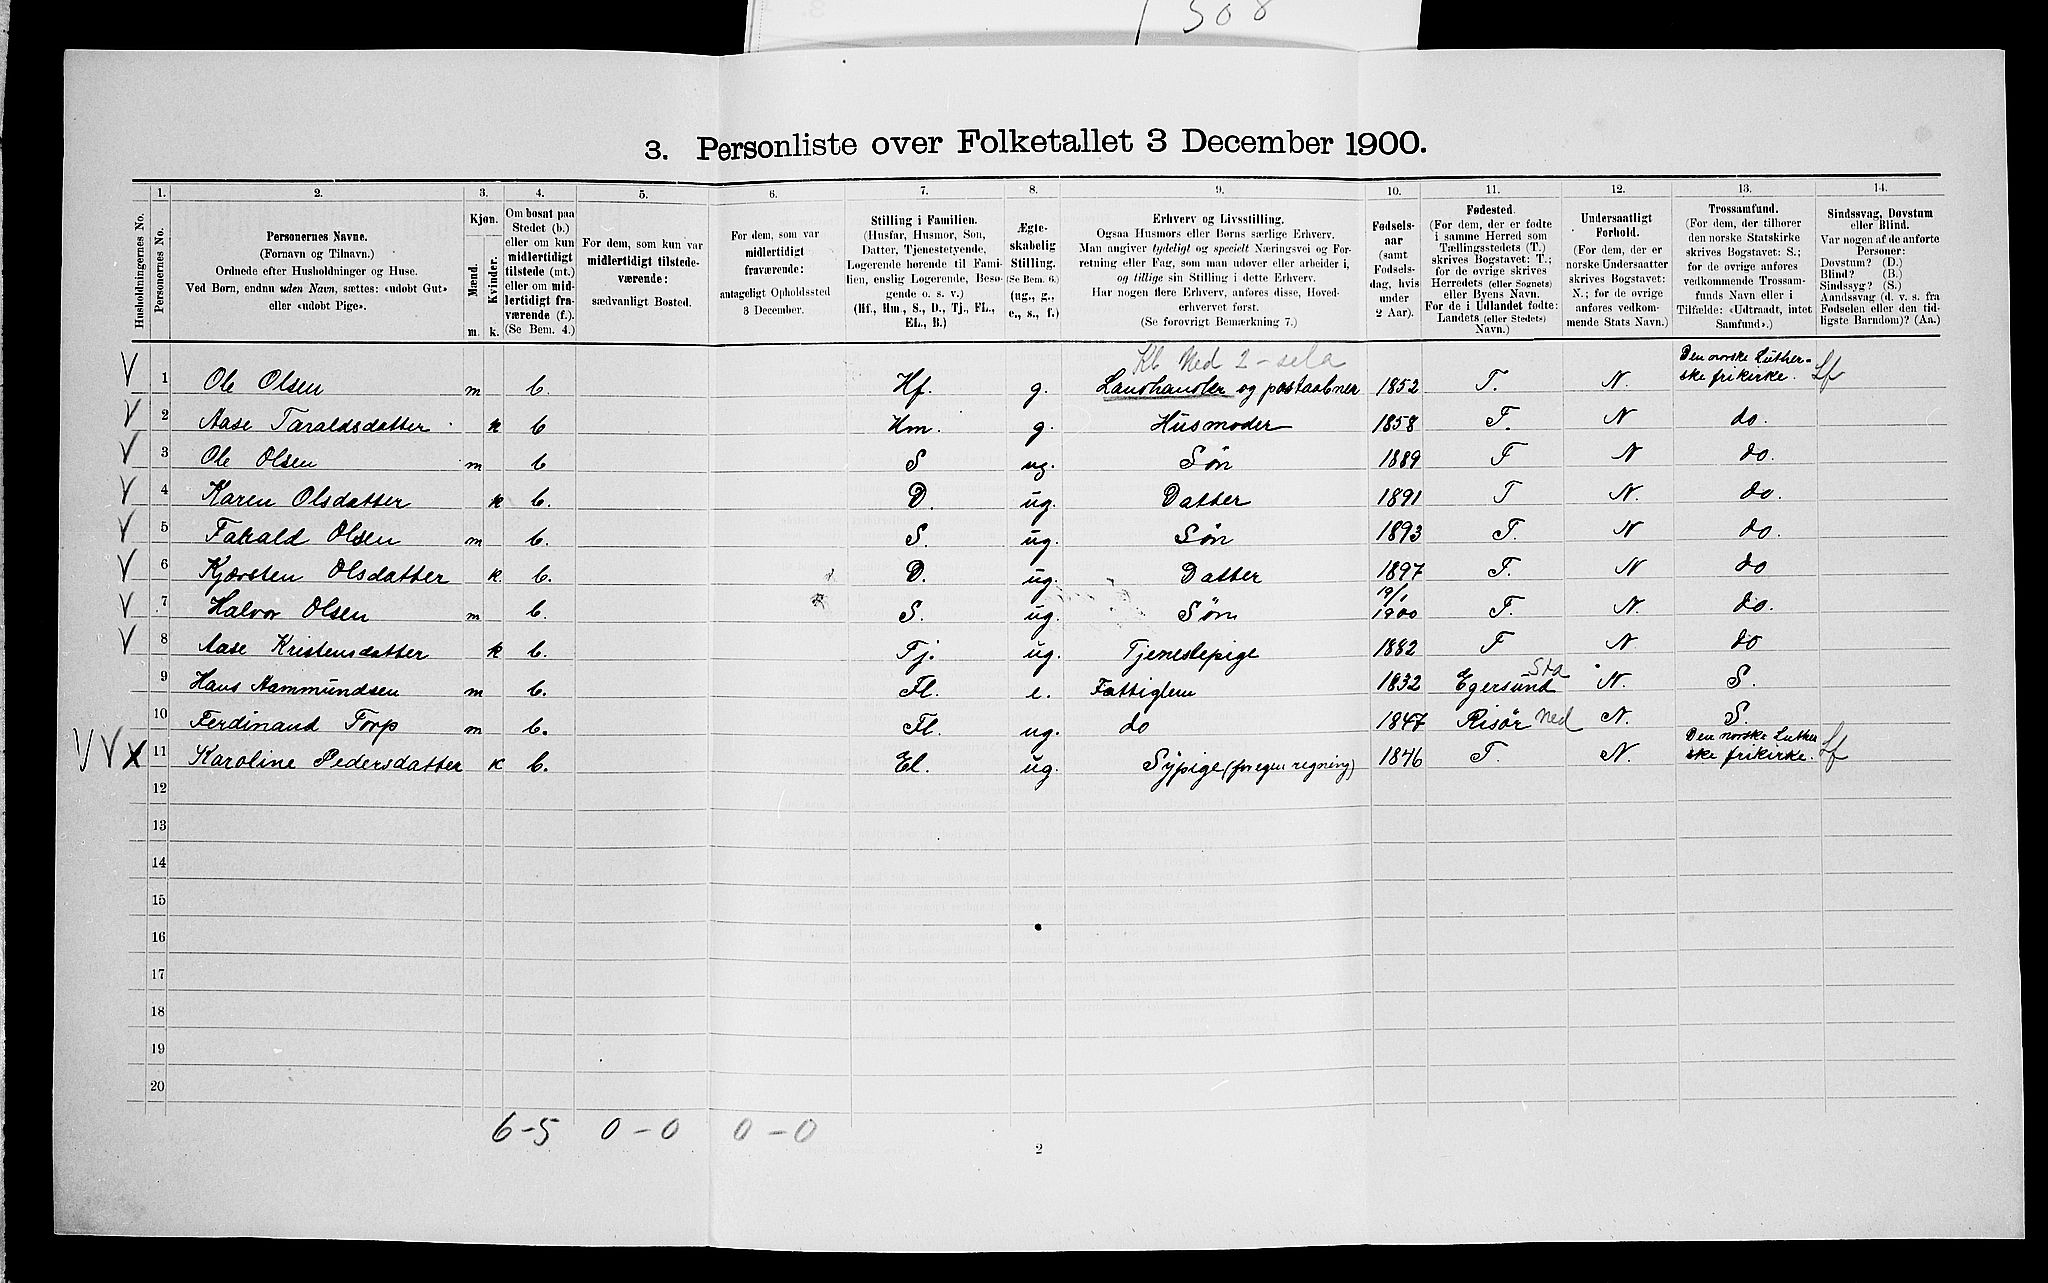 1308
3. Personliste over Folketallet 3 December 1900.
1. 2. 3. 4. 5. 6. 7. 8. 9. 10. 11. 12. 13. 14.
Husholdningernes No.
Personernes No.
Personernes Navne.
(Fornavn og Tilnavn.)
Ordnede efter Husholdninger og Huse.
Ved Børn, endnu uden Navn, sættes: «udøbt Gut»
eller «udøbt Pige».
Kjøn.
Mænd.
Kvinder.
m. k.
Om bosat paa
Stedet (b.)
eller om kun
midlertidigt
tilstede (mt.)
eller om mid-
lertidigt fra-
værende (f.).
(Se Bem. 4.)
For dem, som kun var
midlertidigt tilstede-
værende:
sædvanligt Bosted.
For dem, som var
midlertidigt
fraværende:
antageligt Opholdssted
3 December.
Stilling i Familien.
(Husfar, Husmor, Søn,
Datter, Tjenestetyende,
Logerende hørende til Fami-
lien, enslig Logerende, Besø-
gende o. s. v.)
(Hf., Hm., S., D., Tj., FL.,
EL., B.)
Ægte-
skabelig
Stilling.
(Se Bem. 6.)
(ug., g.,
e., s., f.)
Erhverv og Livsstilling.
Ogsaa Husmors eller Børns særlige Erhverv.
Man angiver tydeligt og specielt Næringsvei og For-
retning eller Fag, som man udøver eller arbeider i,
og tillige sin Stilling i dette Erhverv.
Har nogen flere Erhverv, anføres disse, Hoved-
erhvervet først.
(Se forøvrigt Bemærkning 7.)
Fødsels-
aar
(samt
Fødsels-
dag, hvis
under
2 Aar).
Fødested.
(For dem, der er fødte
i samme Herred som
Tællingsstedets (T.)
skrives Bogstavet: T.;
for de øvrige skrives
Herredets (eller Sognets)
eller Byens Navn.
For de i Udlandet fødte:
Landets (eller Stedets)
Navn.)
Undersaatligt
Forhold.
(For dem, der er
norske Undersaatter
skrives Bogstavet:
N.; for de øvrige
anføres vedkom-
mende Stats Navn.)
Trossamfund.
(For dem, der tilhører
den norske Statskirke
skrives Bogstavet: S.;
for de øvrige anføres
vedkommende Trossam-
funds Navn eller i
Tilfælde: «Udtraadt, intet
Samfund».)
Sindssvag, Døvstum
eller Blind.
Var nogen af de anførte
Personer:
Døvstum? (D.)
Blind? (B.)
Sindssyg? (S.)
Aandssvag (d. v. s. fra
Fødselen eller den tid-
ligste Barndom)? (Aa.)
Kb Ned 2 - sela
V 1 Ole Olsen m b. Hf. g. Landhandler og postaabner 1852 T. N. Den norske Luther-
ske frikirke. Lf
V 2 Aase Taraldsdatter. k b Hm. g. Husmoder 1858 T. N do.
V 3 Ole Olsen m b S ug. Søn 1889 T N do.
V 4 Karen Olsdatter k b. D. ug. Datter 1891 T N. do.
V 5 Tarald Olsen m b. S. ug. Søn 1893 T. N do.
V 6 Kjærsten Olsdatter k. b. D. ug. Datter 1897 T. N do
V 7 Halvor Olsen m b. S. ug. Søn 19/1 1900 T. N. do.
V 8 Aase Kristensdatter k b. Tj. ug. Tjenestepige 1882 T N. do
9 Hans Aammundsen m b. Fl. e. Fattiglem 1832 Egersund Sta N. S.
10 Ferdinand Torp m b. Fl. ug. do 1847 Risør Ned N. S.
V V X 11 Karoline Pedersdatter k b. El. ug. Sypige (for egen regning) 1846 T. N. Den norske Luther
ske frikirke. Lf
12
13
14
15
16
17
18
19
20
6-5 0-0 0-0
2